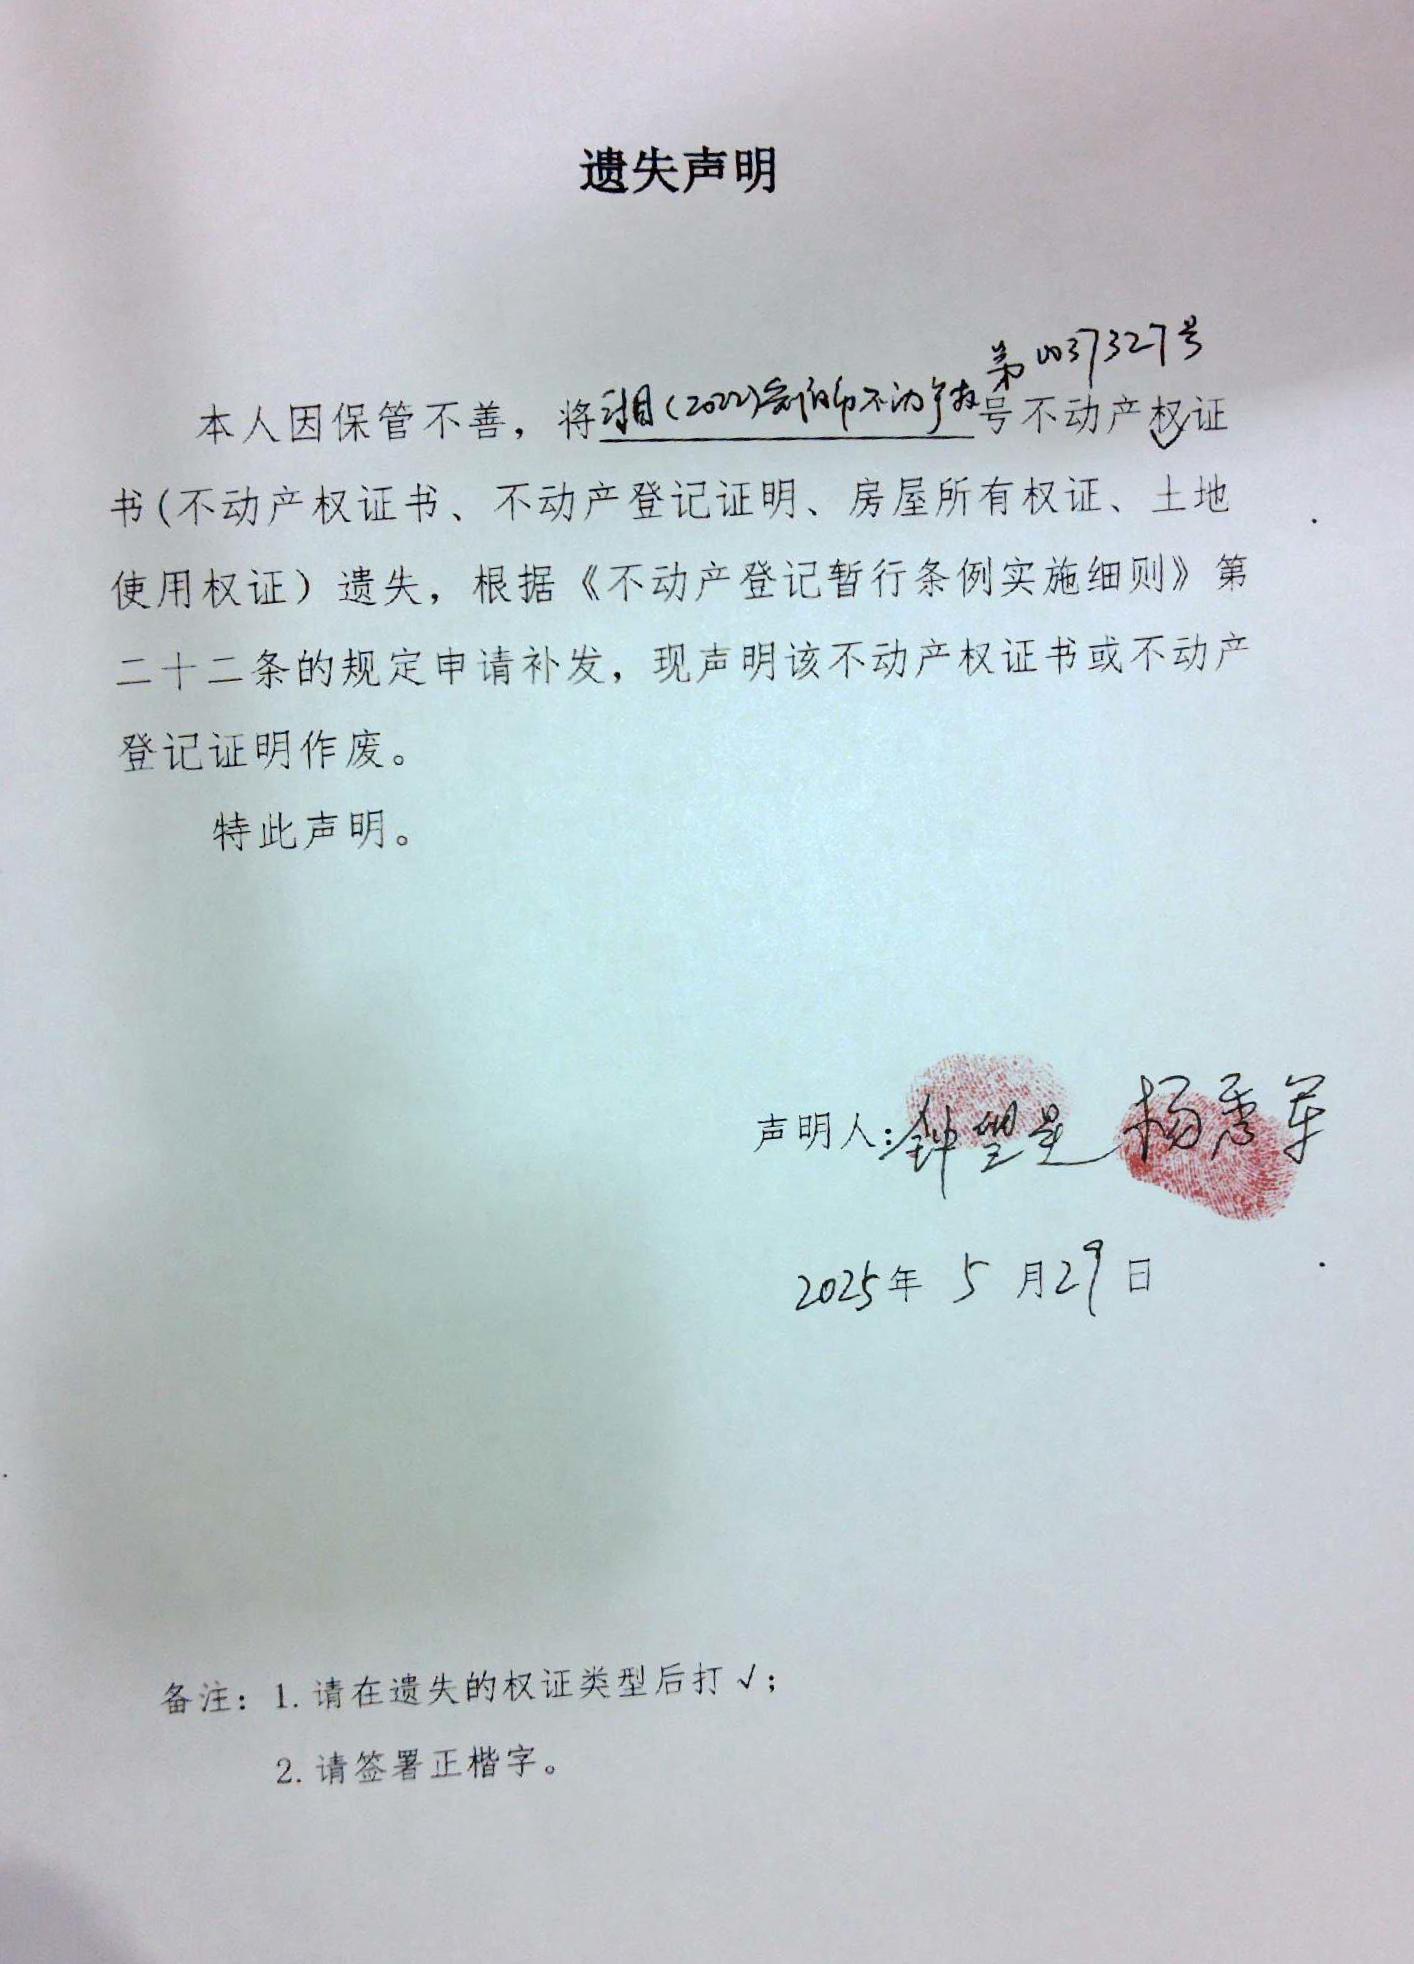 遗失声明
第0037327号
本人因保管不善，将湘(2022)浏阳市不动产权号不动产权证
书(不动产权证书、不动产登记证明、房屋所有权证、土地
使用权证）遗失，根据《不动产登记暂行条例实施细则》第
二十二条的规定申请补发，现声明该不动产权证书或不动产
登记证明作废。
特此声明。
声明人：钟望星 杨秀军
2025年 5 月29日
备注：1.请在遗失的权证类型后打√；
2.请签署正楷字。